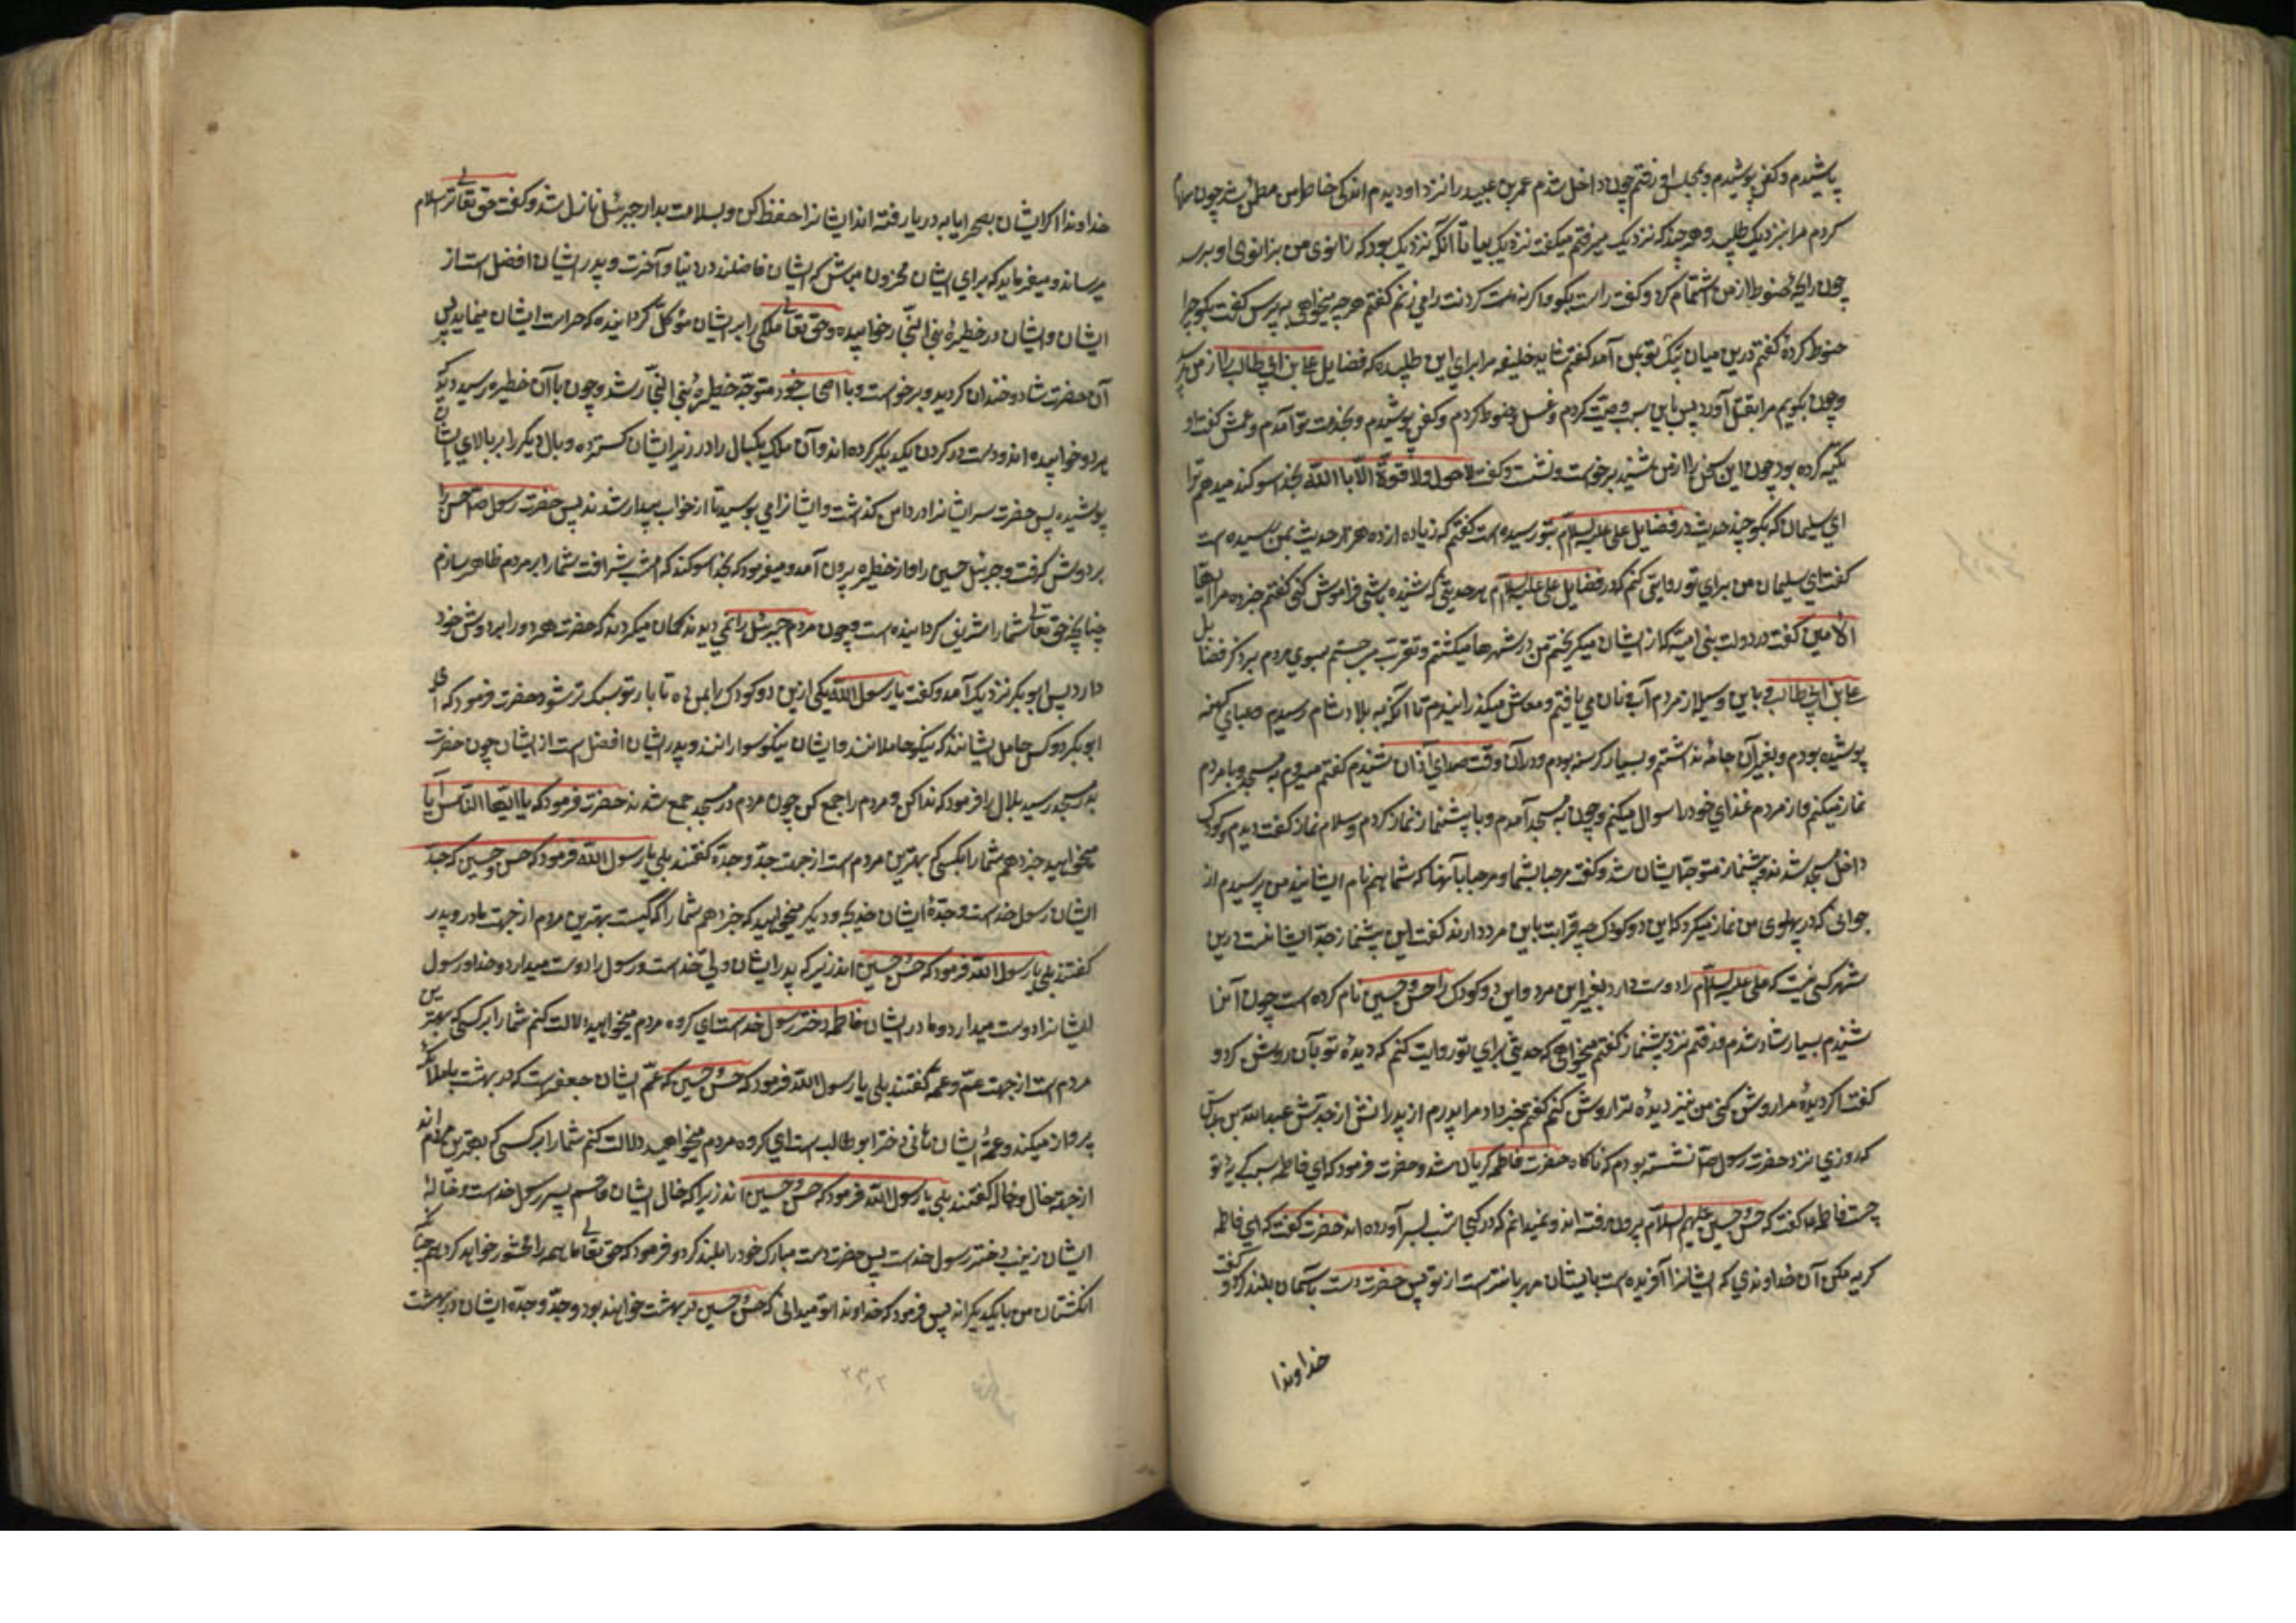 پاشیدم و کفن پوشیدم و بمجلس او رفتم چون داخل شدم عمر بن عبید را نزد او دیدم اندکی خاطر من مطمئن شد چون سلام
کردم مرا نزدیک طلبید و هر چند که نزدیک میرفتم میگفت نزدیک بیا تا آنکه نزدیک بود که زانوی من بزانوی او برسد
چون رایحهٔ حنوط از من استشمام کرد و گفت راست بگو و اگر نه گردنت را می زنم گفتم هر چه میخواهی بپرس گفت بگو چرا
حنوط کردهٔ گفتم درین میان پیک تو بمن آمد گفتم شاید خلیفه مرا برای این طلبیده که فضایل علی بن ابی طالب را از من بپرسد
و چون بگویم مرا بقتل آورد پس باین سبب وصیت کردم و غسل و حنوط کردم و کفن پوشیدم و بخدمت تو آمدم و عمش گفت او
تکیه کرده بود چون این سخن را از من شنید برخواست و نشست و گفت لا حول ولا قوة الا باالله بخدا سوگند میدهم ترا
ای سلیمان که بگو چند حدیث در فضایل علی علیه السلام بتو رسیده است گفتم که زیاده از ده هزار حدیث بمن رسیده است
گفت ای سلیمان من برای تو روایتی کنم که در فضایل علی علیه السلام هر حدیثی که شنیده باشی فراموش کنی گفتم خبر ده مرا ایها
الامین گفت در دولت بنی امیه که از ایشان میگریختم من در شهرها میگشتم و تقرب می جستم بسوی مردم بذکر فضایل
علی بن ابی طالب و باین وسیله از مردم آب و نان می یافتم و معاش میگذرانیدم تا آنکه به بلاد شام رسیدم و عبای کهنه
پوشیده بودم و بغیر آن جامه نداشتم و بسیار گرسنه بودم و در آن وقت صدای آذان شنیدم گفتم میروم به مسجد و با مردم
نماز میکنم و از مردم غذای خود را سوال میکنم و چون به مسجد آمدم و با پیشنماز نماز کردم و سلام نماز گفت دیدم دو کودک
داخل مسجد شدند و پیشنماز متوجه ایشان شد و گفت مرحبا بشما و مرحبا بآنها که شما هم نام ایشانید من پرسیدم از
جوانی که در پهلوی من نماز میکرد که این دو کودک چه قرابت باین مرد دارند گفت این پیشنماز جد ایشانست درین
شهر کسی نیست که علی علیه السلام را دوست دارد بغیر این مرد و این دو کودک را حسن و حسین نام کرده است چون آنرا
شنیدم بسیار شاد شدم و رفتم نزد پیشنماز گفتم میخواهی که حدیثی برای تو روایت کنم که دیدهٔ تو بآن روشن گردد
گفت اگر دیدهٔ مرا روشن کنی من نیز دیدهٔ ترا روشن کنم گفتم خبر داد مرا پدرم از پدرانش از جدش عبدالله بن عباس
که روزی نزد حضرت رسول ص نشسته بودم که ناگاه حضرت فاطمه گریان شد و حضرت فرمود که ای فاطمه سبب گریهٔ تو
چیست فاطمه گفت که حسن و حسین علیهم السلام بیرون رفته اند و نمیدانم که در کجا شب بسر آورده اند حضرت گفت که ای فاطمه
گریه مکن آن خداوندی که ایشانرا آفریده است بایشان مهربانتر است از تو پس حضرت دست بآسمان بلند کرد و گفت
خداوندا
خداوندا اگر ایشان بصحرا یا به دریا رفته اند ایشانرا حفظ کن و بسلامت بدار جبرئیل نازل شد و گفت حق تعالی ترا سلام
میرساند و میفرماید که برای ایشان محزون مباش که ایشان فاضلند در دنیا و آخرت و پدر ایشان افضل است از
ایشان و ایشان در حظیرهٔ بنی النجار خوابیده و حق تعالی ملکی را بر ایشان موکل گردانیده که حراست ایشان مینماید پس
آن حضرت شاد و خندان گردید و برخواست و با اصحاب خود متوجه حظیرهٔ بنی النجار شد و چون باآن حظیره رسید دید که
هر دو خوابیده اند و دست در گردن یکدیگر کرده اند و آن ملک یکبال را در زیر ایشان گسترده و بال دیگر را بر بالای ایشان
پوشیده پس حضرت سر ایشانرا در دامن گذاشت و ایشانرا می بوسید تا از خواب بیدار شدند پس حضرت رسول ص حسن را
بر دوش گرفت و جبرئیل حسین را و از حظیره بیرون آمد و میفرمود که بخدا سوگند که امشب شرافت شما را بر مردم ظاهر سازم
چنانچه حق تعالی شما را شریف گردانیده است و چون مردم جبرئیل را نمی دیدند گمان میکردند که حضرت هر دو را بر دوش خود
دارد پس ابو بکر نزدیک آمد و گفت یا رسول الله یکی ازین دو کودک را بمن ده تا بار تو سبک تر شود حضرت فرمود که ای
ابو بکر دو کس حامل ایشانند که نیکو حاملانند و ایشان نیکو سوارانند و پدر ایشان افضل است از ایشان چون حضرت
به مسجد رسید بلال را فرمود که ندا کن و مردم را جمع کن چون مردم در مسجد جمع شدند حضرت فرمود که یا ایها الناس آیا
میخواهید خبر دهم شما را بکسی که بهترین مردم است از جهت جد و جده گفتند بلی یا رسول الله فرمود که حسن و حسین که جد
ایشان رسول خداست و جدهٔ ایشان خدیجه و دیگر میخواهید که خبر دهم شما را که کیست بهترین مردم از جهت مادر و پدر
گفتند بلی یا رسول الله فرمود که حسن و حسین اند زیرا که پدر ایشان ولی خداست و رسول را دوست میدارد و خدا و رسول
ایشانرا دوست میدارد و مادر ایشان فاطمه دختر رسول خداست ای گروه مردم میخواهید دلالت کنم شما را بر کسی که بهترین
مردم است از جهت عم و عمه گفتند بلی یا رسول الله فرمود که حسن و حسین که عم ایشان جعفر است که در بهشت باملائکه
پرواز میکند و عمهٔ ایشان هانی دختر ابو طالب است ای گروه مردم میخواهید دلالت کنم شما را بر کسی که بهترین مردم اند
از جهة خال و خاله گفتند بلی یا رسول الله فرمود که حسن و حسین اند زیرا که خال ایشان قاسم پسر رسول خداست و خالهٔ
ایشان زینب دختر رسول خداست پس حضرت دست مبارک خود را بلند کرد و فرمود که حق تعالی ما همه را محشور خواهد کرد همچنانکه
انگشتان من با یکدیگراند پس فرمود که خداوندا تو میدانی که حسن و حسین در بهشت خواهند بود و جد و جدهٔ ایشان در بهشت
۲۳۰۲